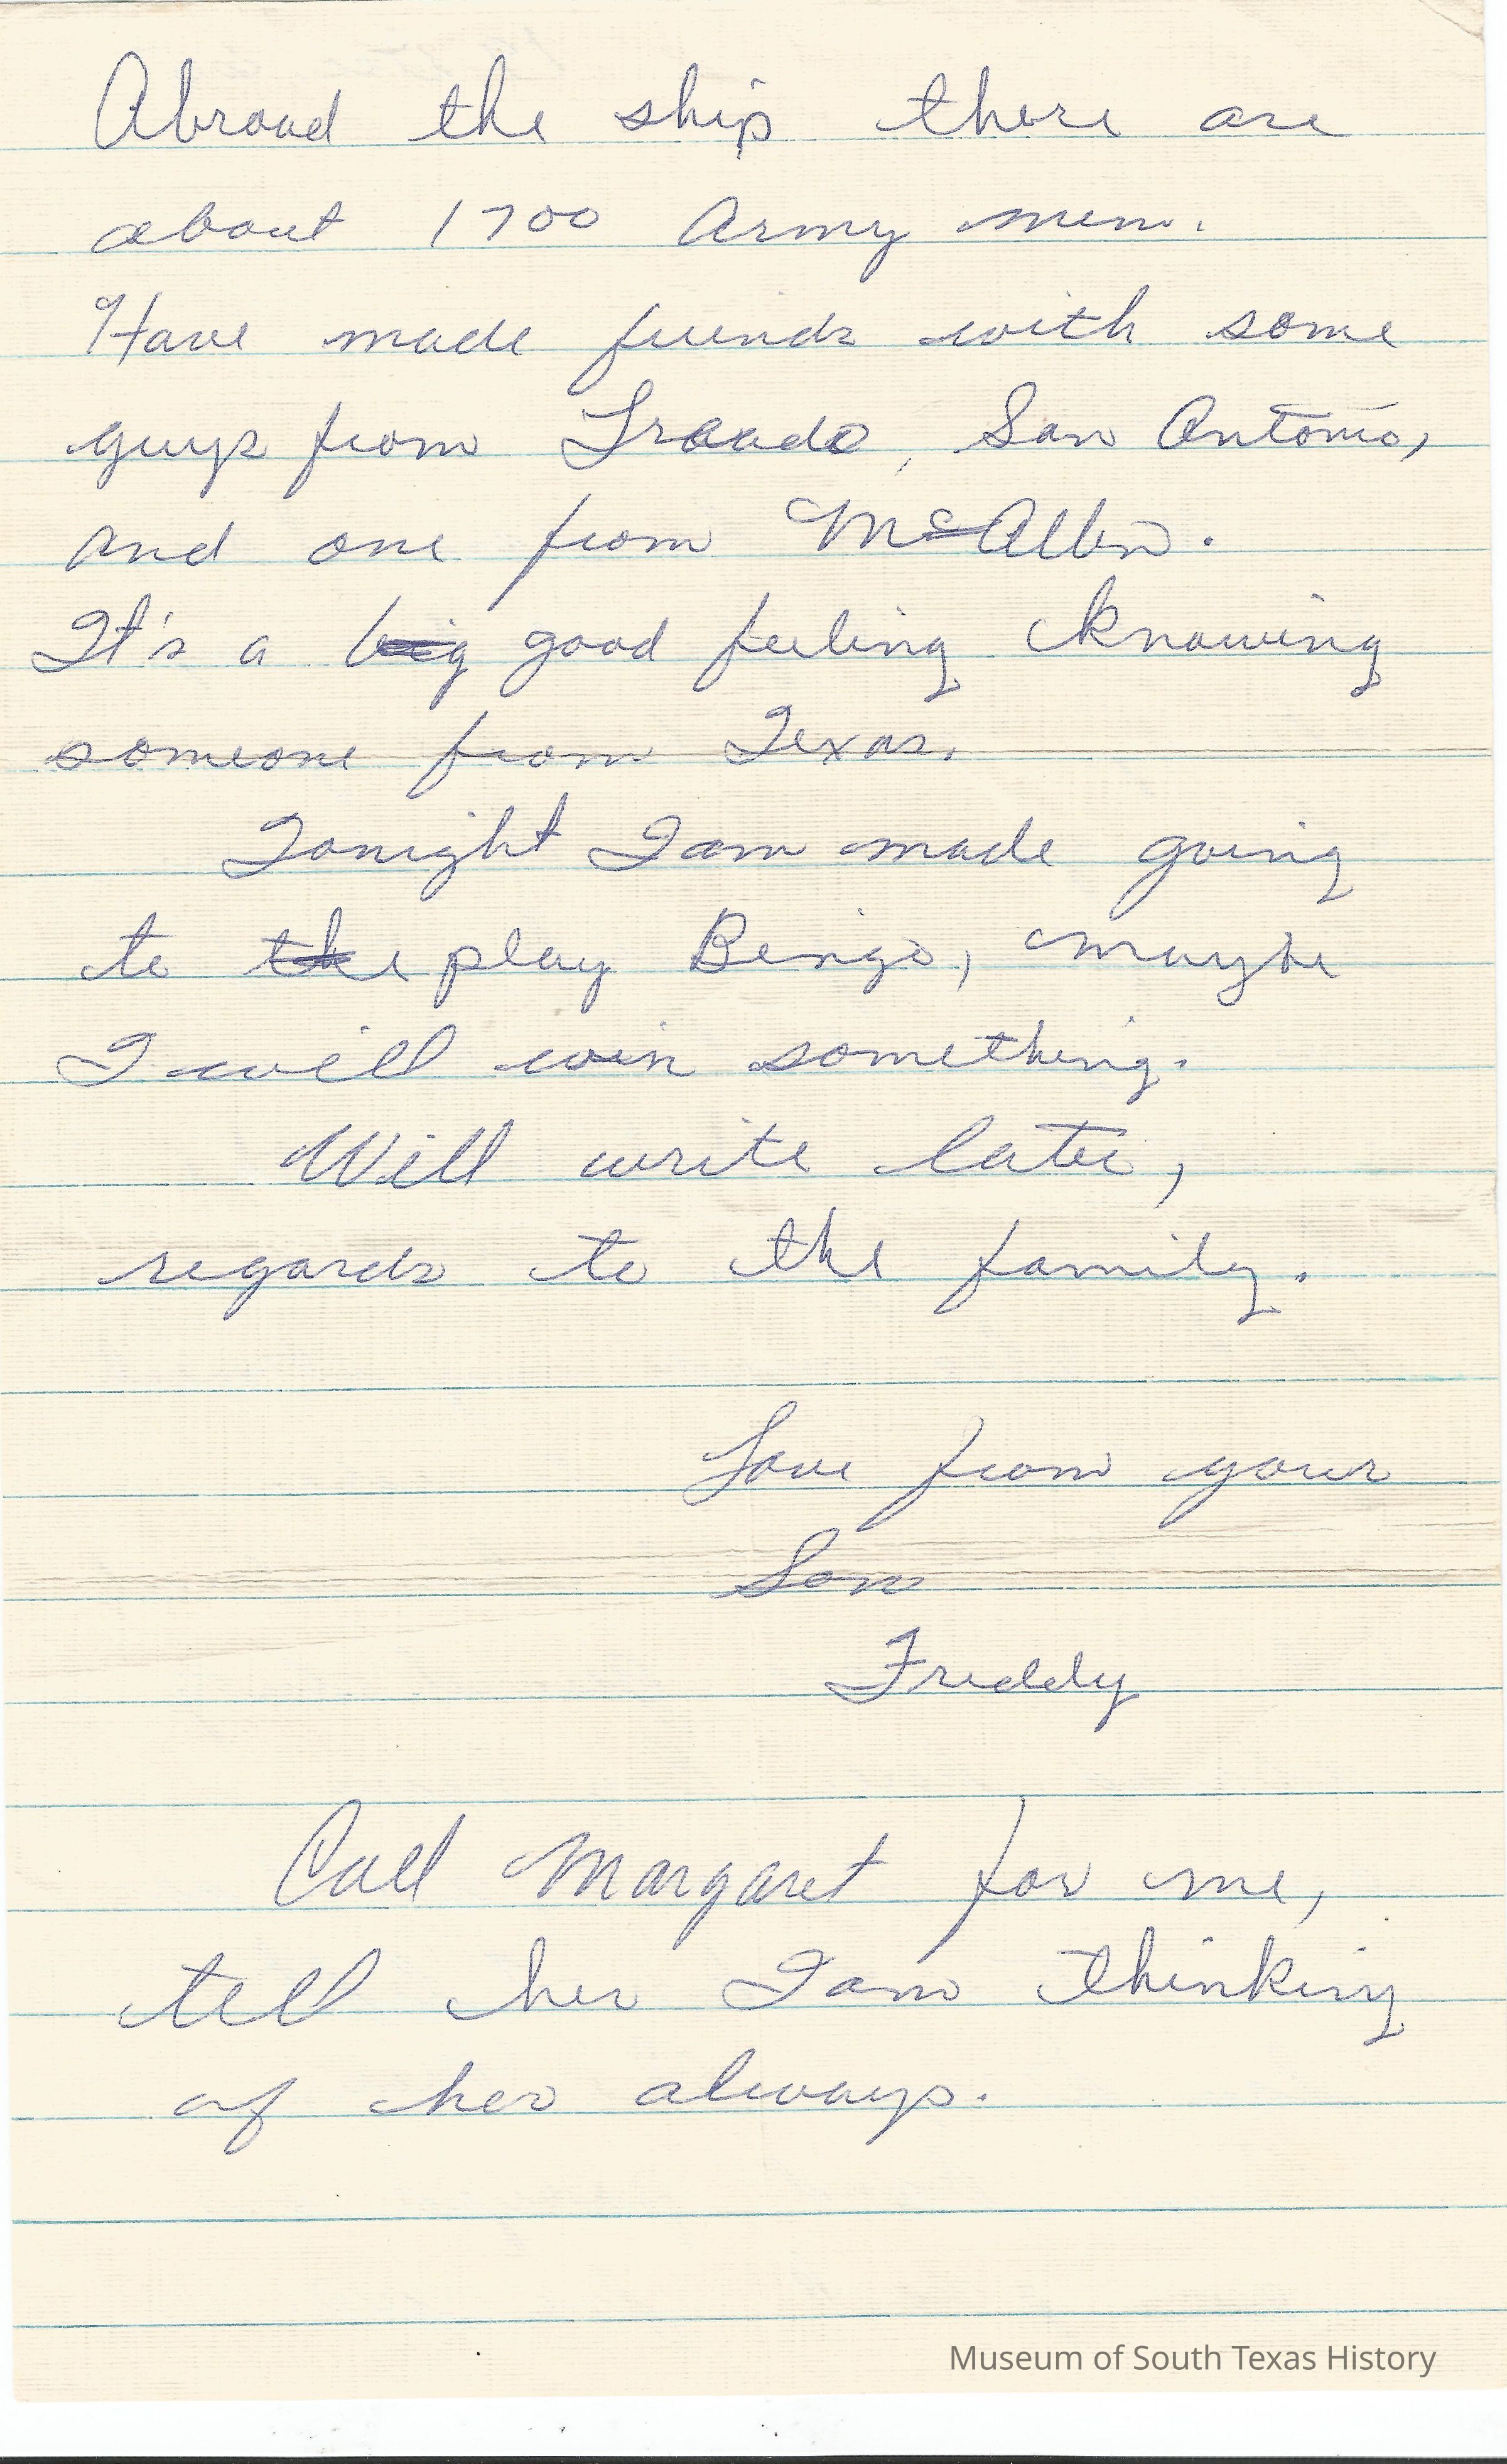 Abroad the ship there are
about 1700 Army men.
Have made friends with some
guys from Laredo, San Antonio,
and one from McAllen.
It's a big good feeling knowing
someone from Texas.
Tonight I am made going
to the play Bingo, maybe
I will win something.
Will write later,
regards to the family.
Love from your
Son
Freddy
Call Margaret for me,
tell her I am thinking
of her always.
Museum of South Texas History